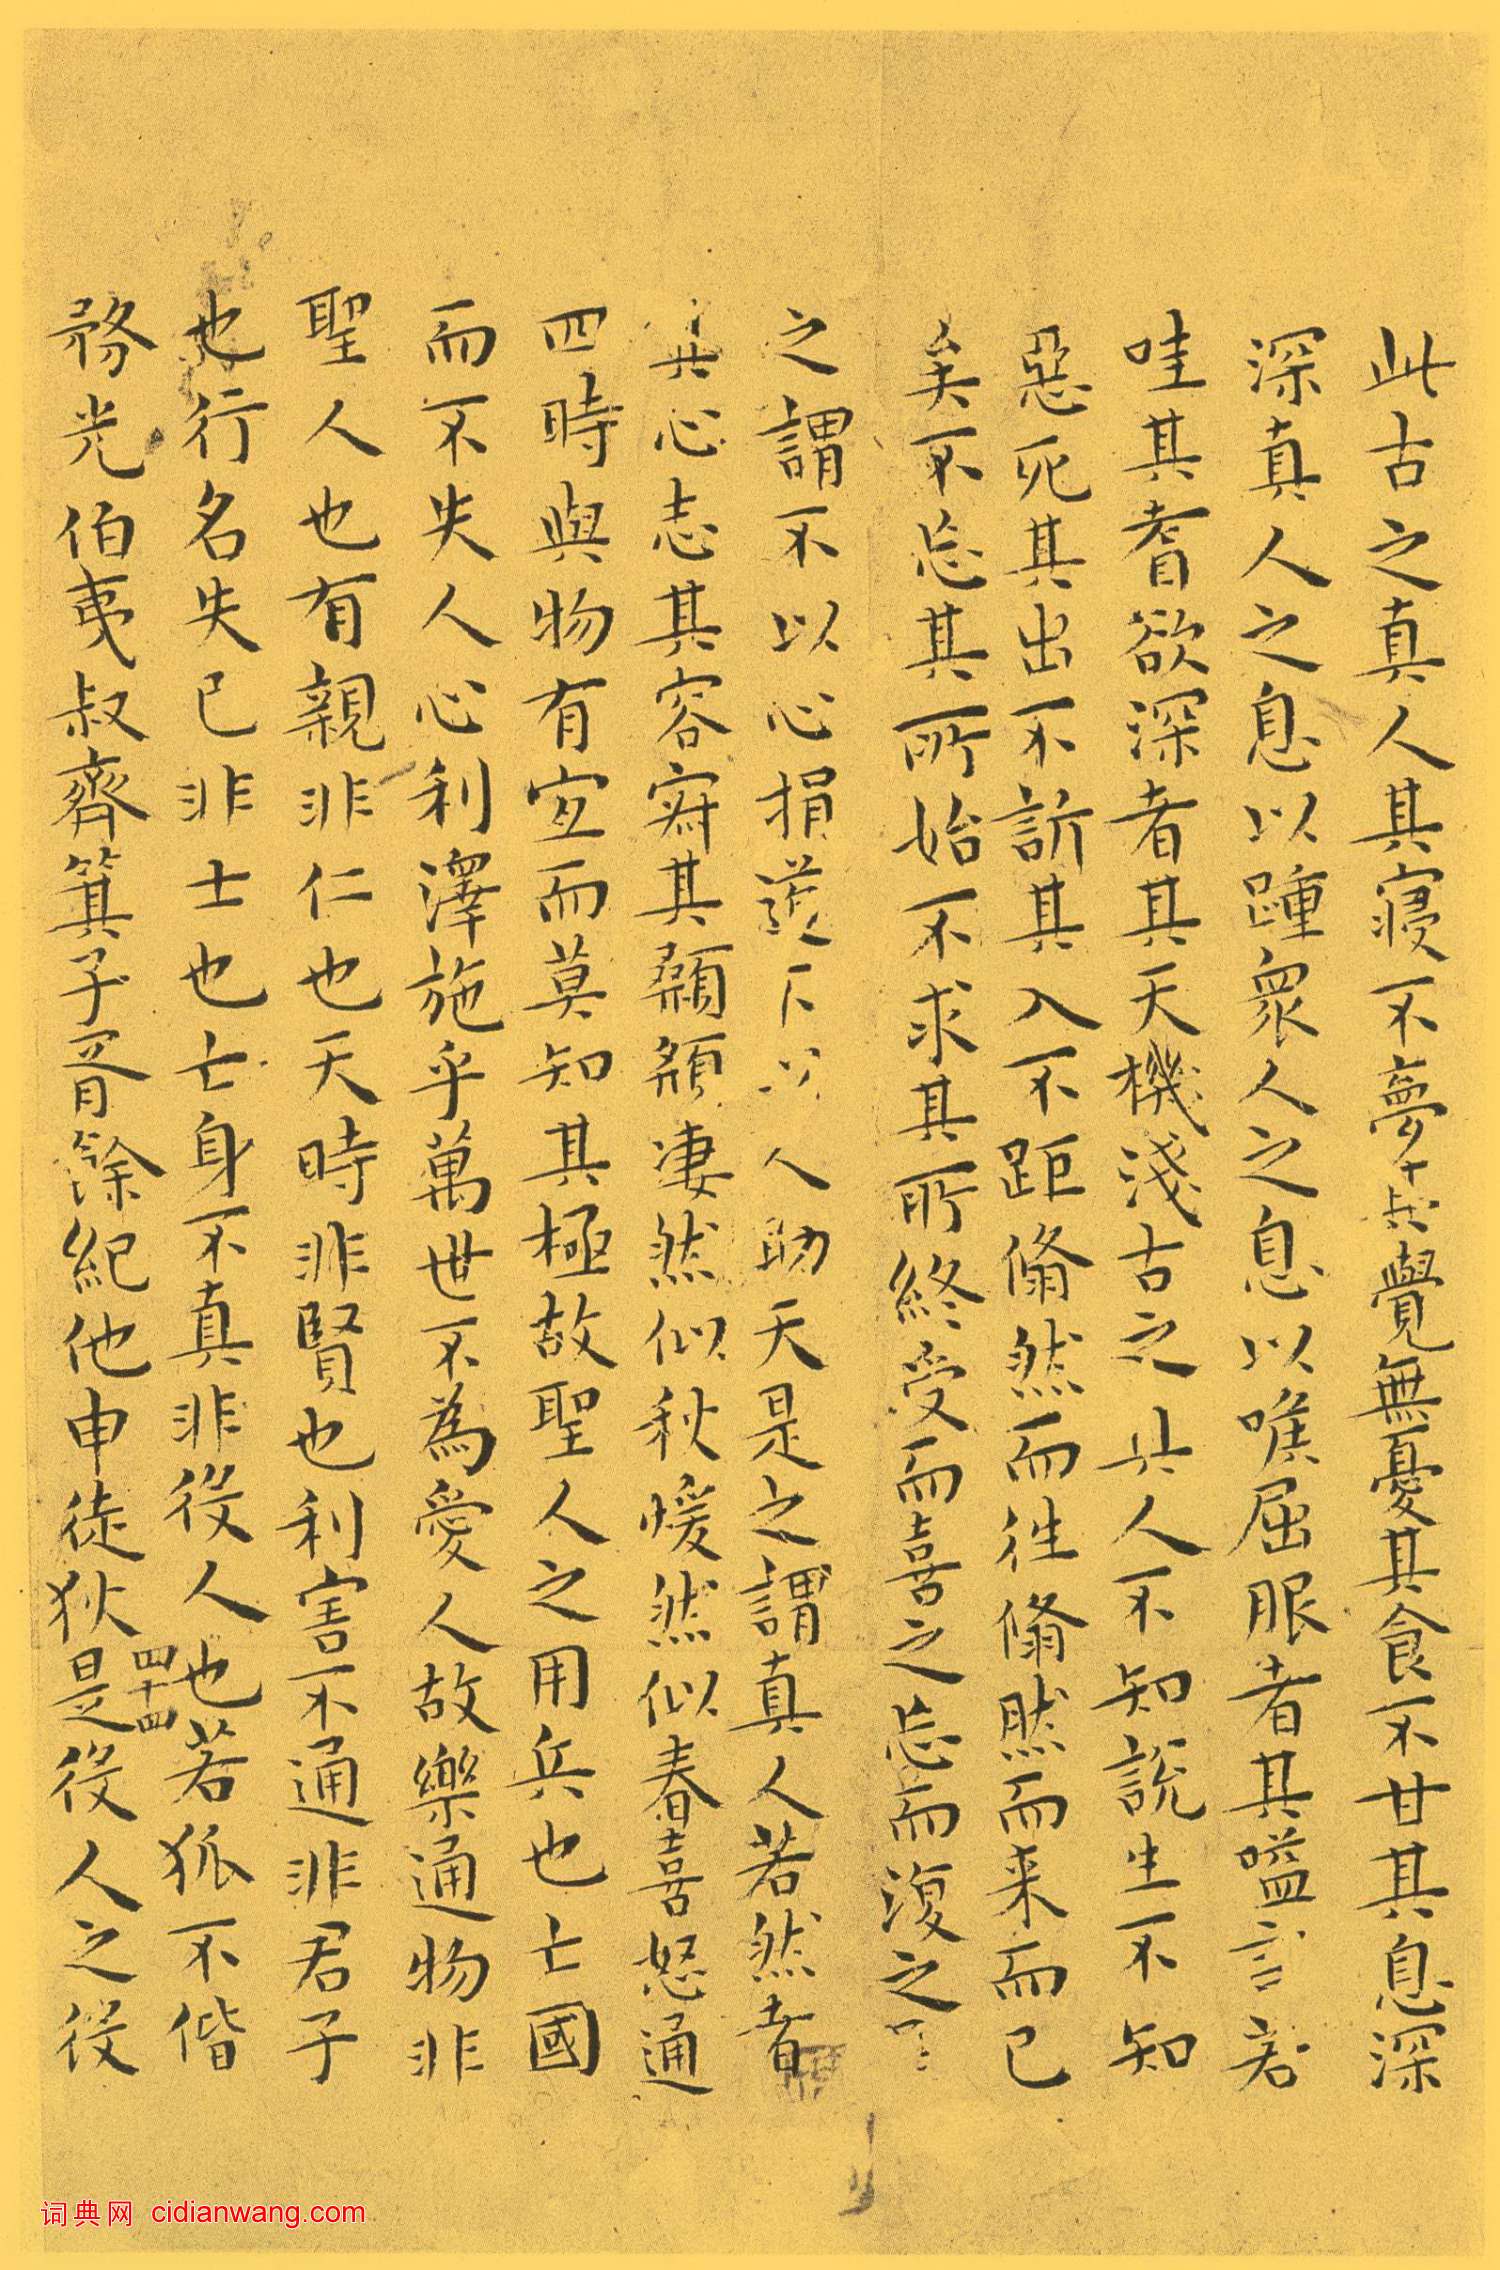 此古之真人其寢不夢其覺無憂其食不甘其息深
深真人之息以踵眾人之息以喉屈服者其嗌言若
哇其耆欲深者其天機淺古之真人不知說生不知
惡死其出不訢其入不距翛然而往翛然而来而已
矣不忘其所始不求其所終受而喜之忘而復之
之謂不以心捐道不以人助天是之謂真人若然者
其心志其容寂其顙頯凄然似秋煖然似春喜怒通
四時與物有宜而莫知其極故聖人之用兵也亡國
而不失人心利澤施乎萬世不為愛人故樂通物非
聖人也有親非仁也天時非賢也利害不通非君子
也行名失已非士也亡身不真非役人也若狐不偕
務光伯夷叔齊箕子胥餘紀他申徒狄是役人之役
四十四
词典网 cidianwang.com